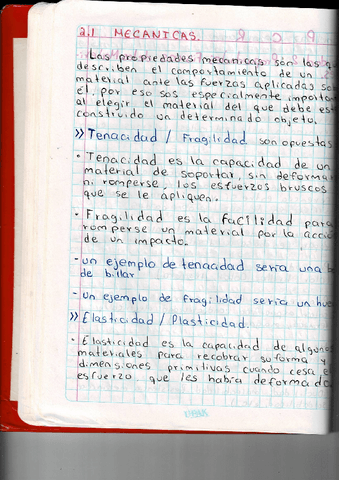 2.1 MECANICAS.
Las propiedades mecanicas son las q
describen el comportamiento de un
material ante las fuerzas aplicadas so
él, por eso sos especialmente importa
al elegir el material del que debe est
construido un determinado objeto.
>> Tenacidad / Fragilidad son opuestas
• Tenacidad es la capacidad de un
material de soportar, sin deforma
ni romperse, los esfuerzos bruscos
que se le apliquen.
• Fragilidad es la facilidad para
romperse un material por la acció
de un impacto.
- un ejemplo de tenacidad seria una b
de billar
- un ejemplo de fragilidad seria un hue
>> Elasticidad / Plasticidad.
• Elasticidad es la capacidad de alguno
materiales para recobrar su forma y
dimensiones primitivas cuando cesa e
esfuerzo que les habia deformado